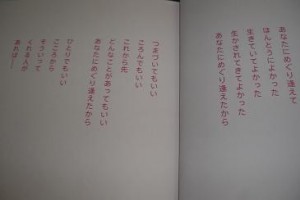 あなたにめぐり逢えて
ほんとうによかった
生きていてよかった
生かされてきてよかった
あなたにめぐり逢えたから
つまづいてもいい
ころんでもいい
これから先
どんなことがあってもいい
あなたにめぐり逢えたから
ひとりでもいい
こころから
そういって
くれる人が
あれば……